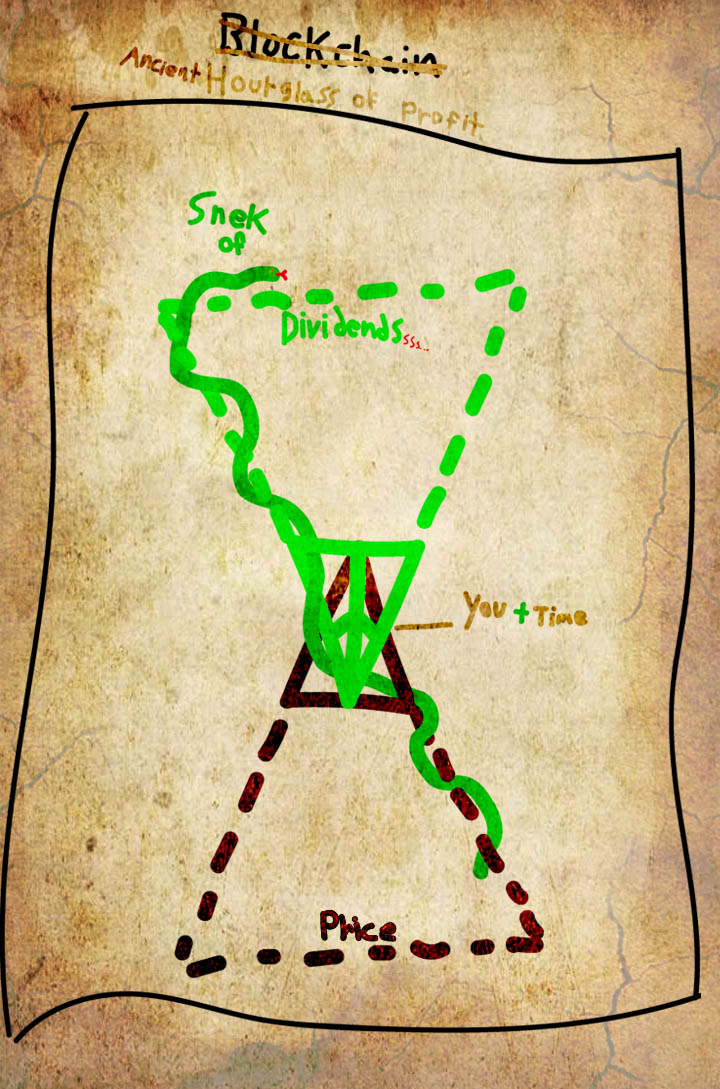 Blockchain
Ancient Hourglass of Profit
Snek
of
Dividends sss...
You + Time
Price